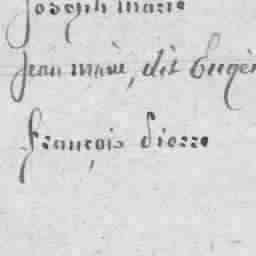 Joseph Marie
Jean Marie, dit Eugèn
François Pierre